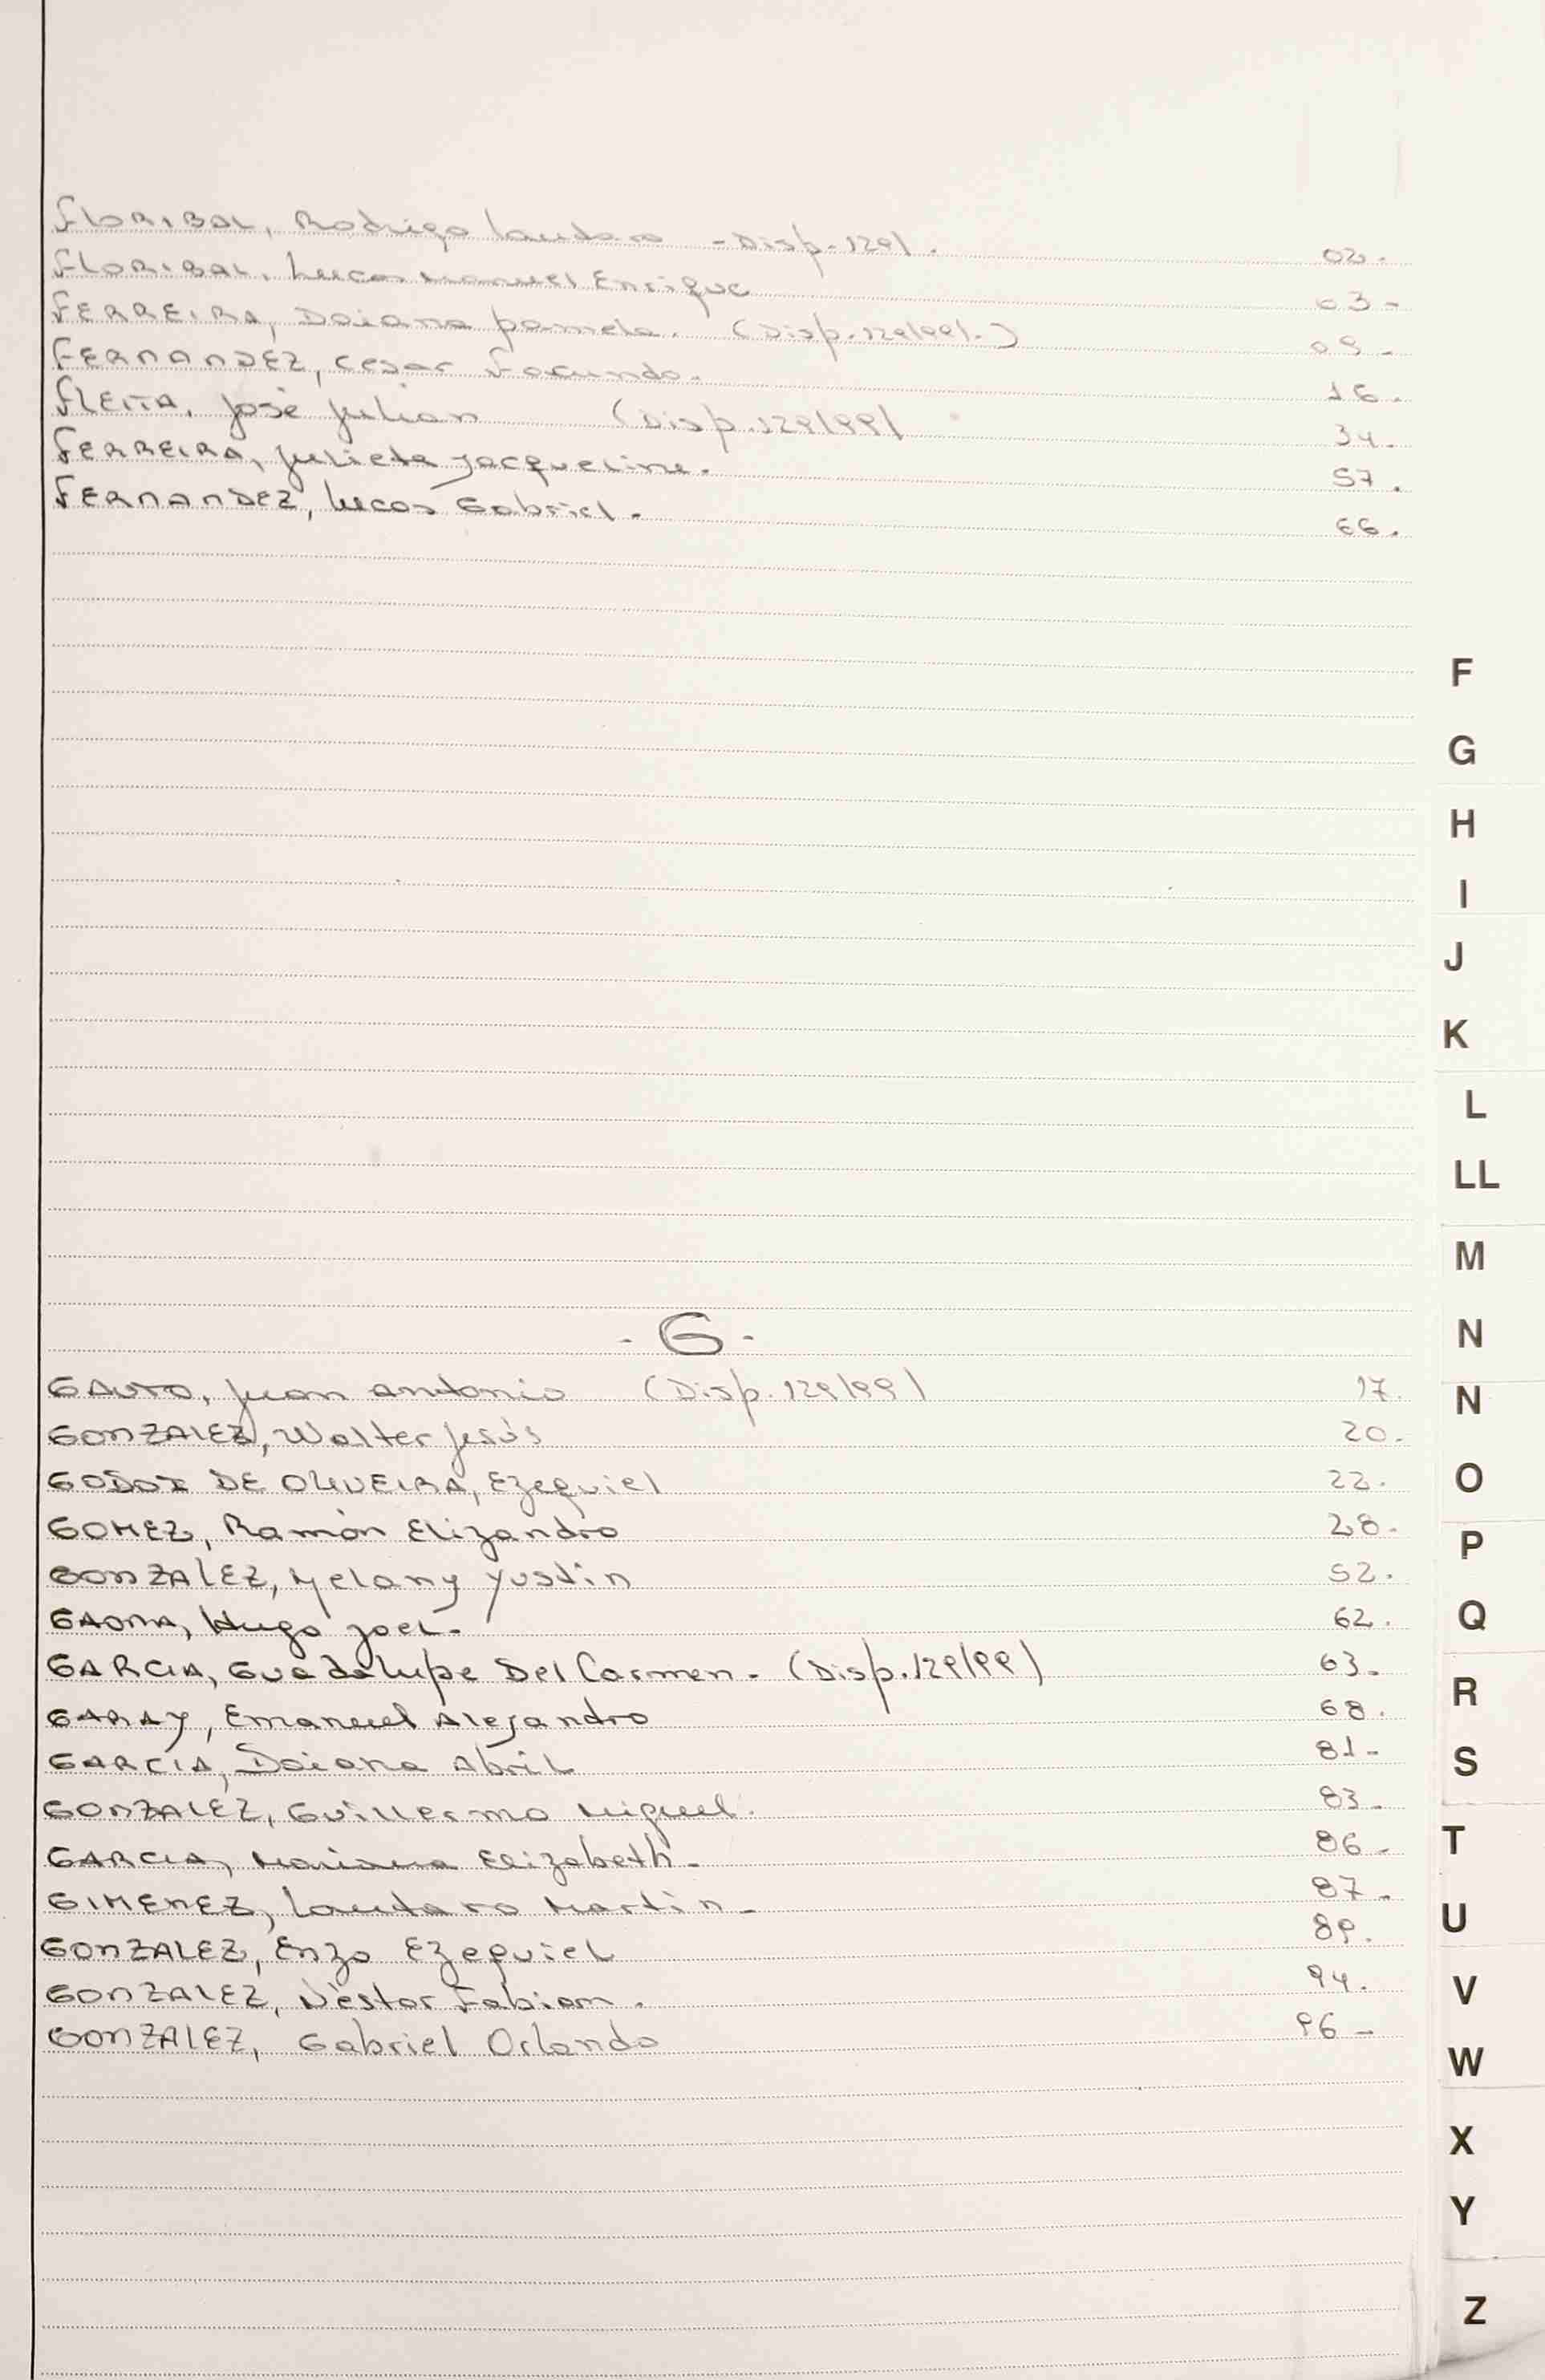 FLORIBAL, Rodrigo Lautaro - Disp. 129/. 02.
FLORIBAL, Lucas Manuel Enrique 03-
FERREIRA, Daiana pamela. (Disp. 129/99/.) 09-
FERNANDEZ, cesar Facundo. 16.
FLEITA, José Julian (Disp. 129/99/ 34.
FERREIRA, Julieta Jacqueline. 57.
FERNANDEZ, Lucas Gabriel. 66.
F
G
H
I
J
K
L
LL
M
N
- G -
GAUTO, Juan antonio (Disp. 129/99) 17.
N
GONZALEZ, Walter Jesús 20.
GODOY DE OLIVEIRA, Ezequiel 22.
O
GOMEZ, Ramón Elizandro 28.
P
GONZALEZ, Melany Yustin 52.
GAONA, Hugo Joel. 62.
Q
GARCIA, Guadalupe Del Carmen. (Disp. 129/99) 63.
R
GARAY, Emanuel Alejandro 68.
GARCÍA, Daiana Abril 81-
S
GONZALEZ, Guillermo Miguel. 83-
GARCIA, Mariana Elizabeth. 86-
T
GIMENEZ, Lautaro Martin. 87.
U
GONZALEZ, Enzo Ezequiel 89.
GONZALEZ, Néstor Fabian. 94.
V
GONZALEZ, Gabriel Orlando 96-
W
X
Y
Z